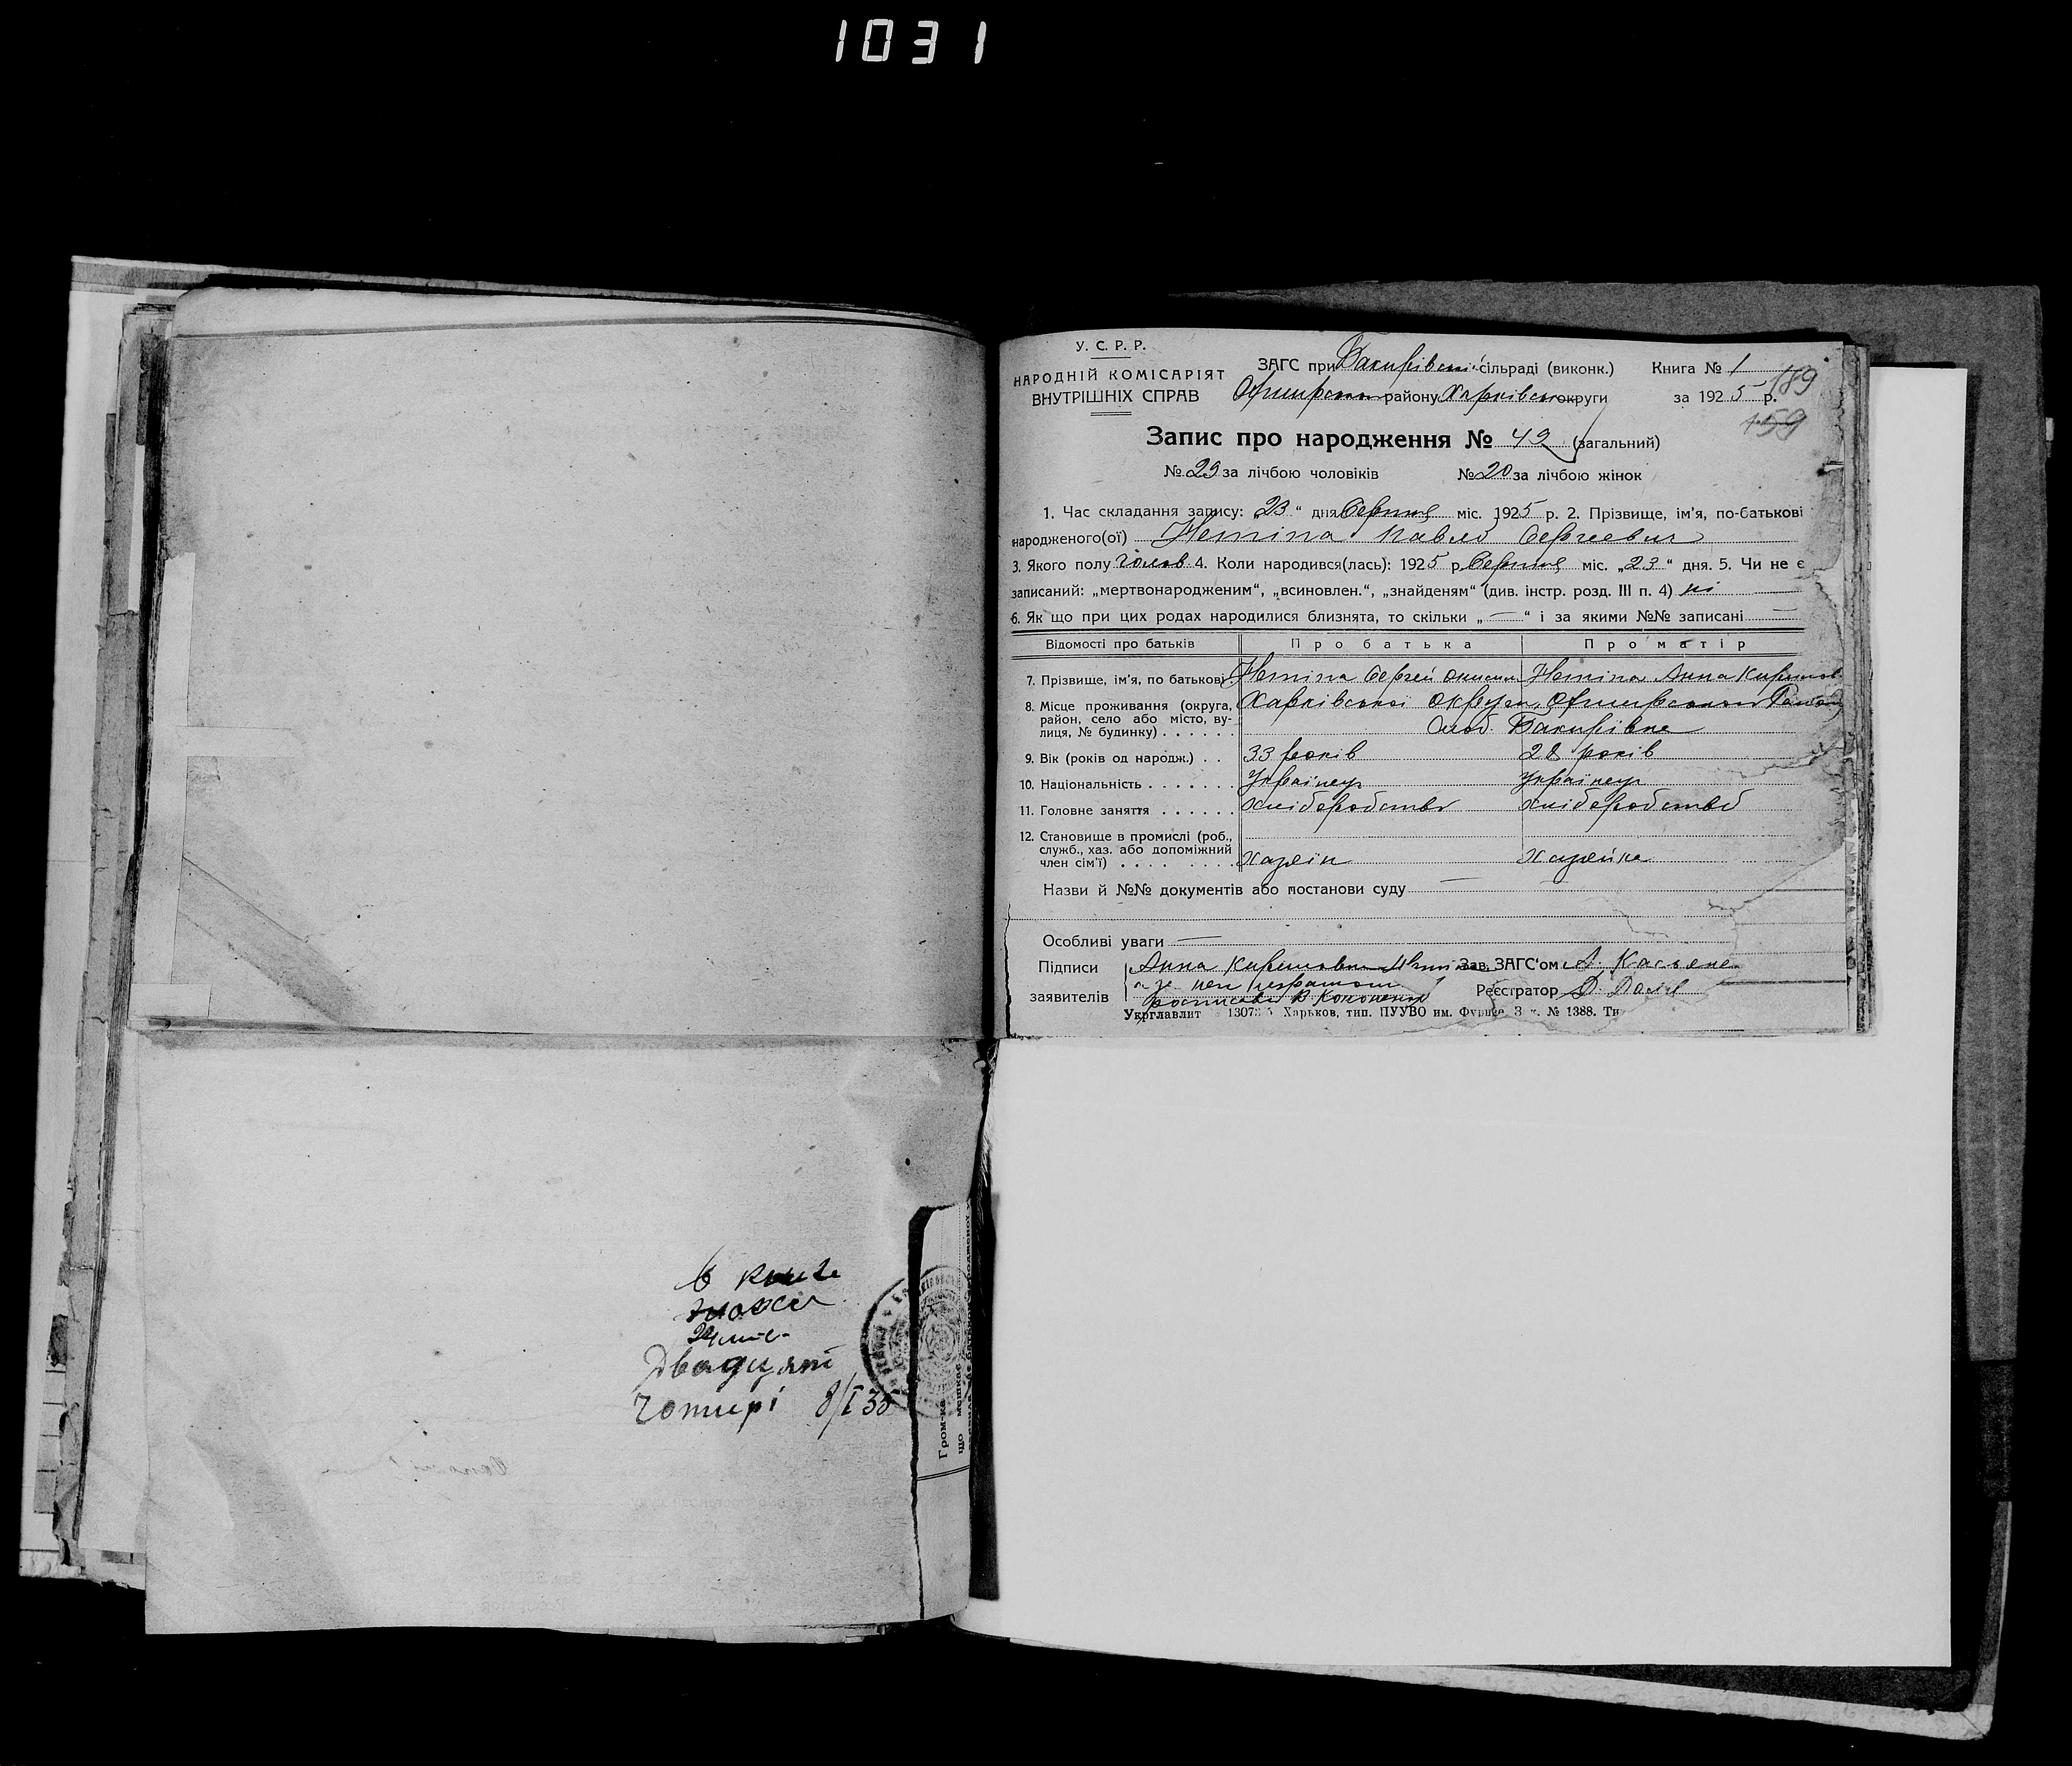 1031
У. С. Р. Р.
НАРОДНІЙ КОМІСАРІЯТ
ВНУТРІШНІХ СПРАВ
ЗАГС при Бакирівській сільраді (виконк.) Книга № 1
району Харківської округи за 1925 р.
189
159
Запис про народження № 49 (загальний)
№ 29 за лічбою чоловіків № 20 за лічбою жінок
1. Час складання запису: „23“ дня Серпня міс. 1925 р. 2. Прізвище, ім'я, по-батькові
народженого(ої) Нетіпа Павло Сергеевич
3. Якого полу чолов. 4. Коли народився(лась): 1925 р. Серпня міс. „23“ дня. 5. Чи не є
записаний: „мертвонародженим“, „всиновлен.“, „знайденям“ (див. інстр. розд. III п. 4) ні
6. Як що при цих родах народилися близнята, то скільки „—“ і за якими №№ записані —
Відомості про батьків Про батька Про матір
7. Прізвище, ім'я, по батькові Нетіпа Сергей Нетіпа Анна
8. Місце проживання (округа, район, село або місто, ву-лиця, № будинку) Харківської округи
Слоб. Бакирівка
9. Вік (років од народж.) 33 років 28 років
10. Національність Українец Українец
11. Головне заняття хліборобство хліборобство
12. Становище в промислі (роб., служб., хаз. або допоміжний член сім'ї) хазяїн хазяйка
Назви й №№ документів або постанови суду —
Особливі уваги —
Підписи
заявителів
Анна
Зав. ЗАГС'ом
Реєстратор
Укрглавлит Харьков, тип. ПУУВО им. Фрунзе. № 1388.
В книге
24
Двадцят
чотирі 8/I 35
Гром-ка
що мешкає